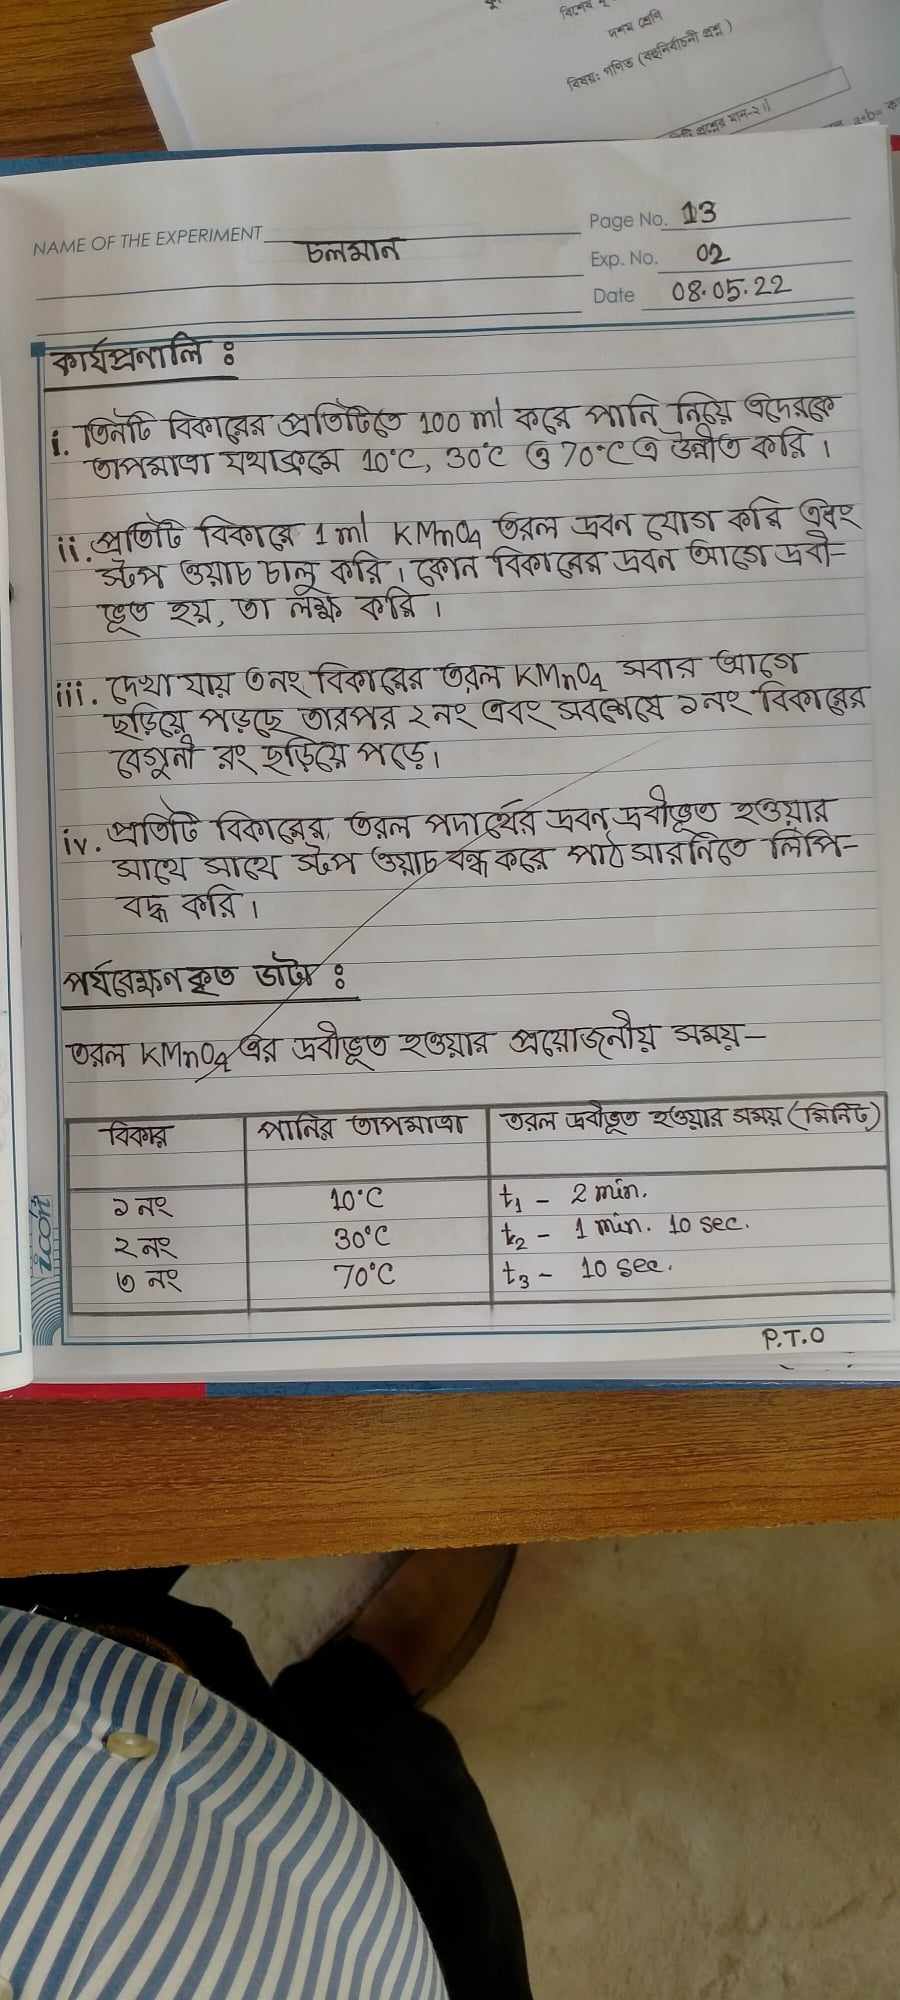 দশম শ্রেণি
বিষয়: গণিত (বহুনির্বাচনী প্রশ্ন)
প্রশ্নের মান-২।।
a+b=
NAME OF THE EXPERIMENT চলমান
Page No. 13
Exp. No. 02
Date 08.05.22
কার্যপ্রনালি :
i. তিনটি বিকারের প্রতিটিতে 100 ml করে পানি নিয়ে এদেরকে
তাপমাত্রা যথাক্রমে 10°C, 30°C ও 70°C এ উন্নীত করি।
ii. প্রতিটি বিকারে 1 ml KMnO4 তরল দ্রবন যোগ করি এবং
স্টপ ওয়াচ চালু করি। কোন বিকারের দ্রবন আগে দ্রবী-
ভূত হয়, তা লক্ষ করি।
iii. দেখা যায় ৩নং বিকারের তরল KMnO4 সবার আগে
ছড়িয়ে পড়ছে তারপর ২নং এবং সবশেষে ১নং বিকারের
বেগুনী রং ছড়িয়ে পড়ে।
iv. প্রতিটি বিকারের তরল পদার্থের দ্রবন দ্রবীভূত হওয়ার
সাথে সাথে স্টপ ওয়াচ বন্ধ করে পাঠ সারনিতে লিপি-
বদ্ধ করি।
পর্যবেক্ষনকৃত ডাটা :
তরল KMnO4 এর দ্রবীভূত হওয়ার প্রয়োজনীয় সময়-
বিকার পানির তাপমাত্রা তরল দ্রবীভূত হওয়ার সময় (মিনিট)
১ নং 10°C t1 - 2 min.
২ নং 30°C t2 - 1 min. 10 sec.
৩ নং 70°C t3 - 10 sec.
icon
P.T.O